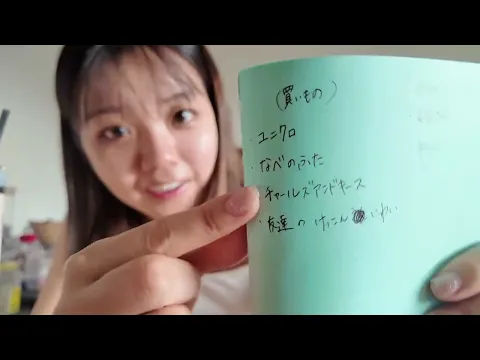 (買いもの)
・ユニクロ
・なべのふた
・チャールズアンドキース
・友達のけっこんいわい